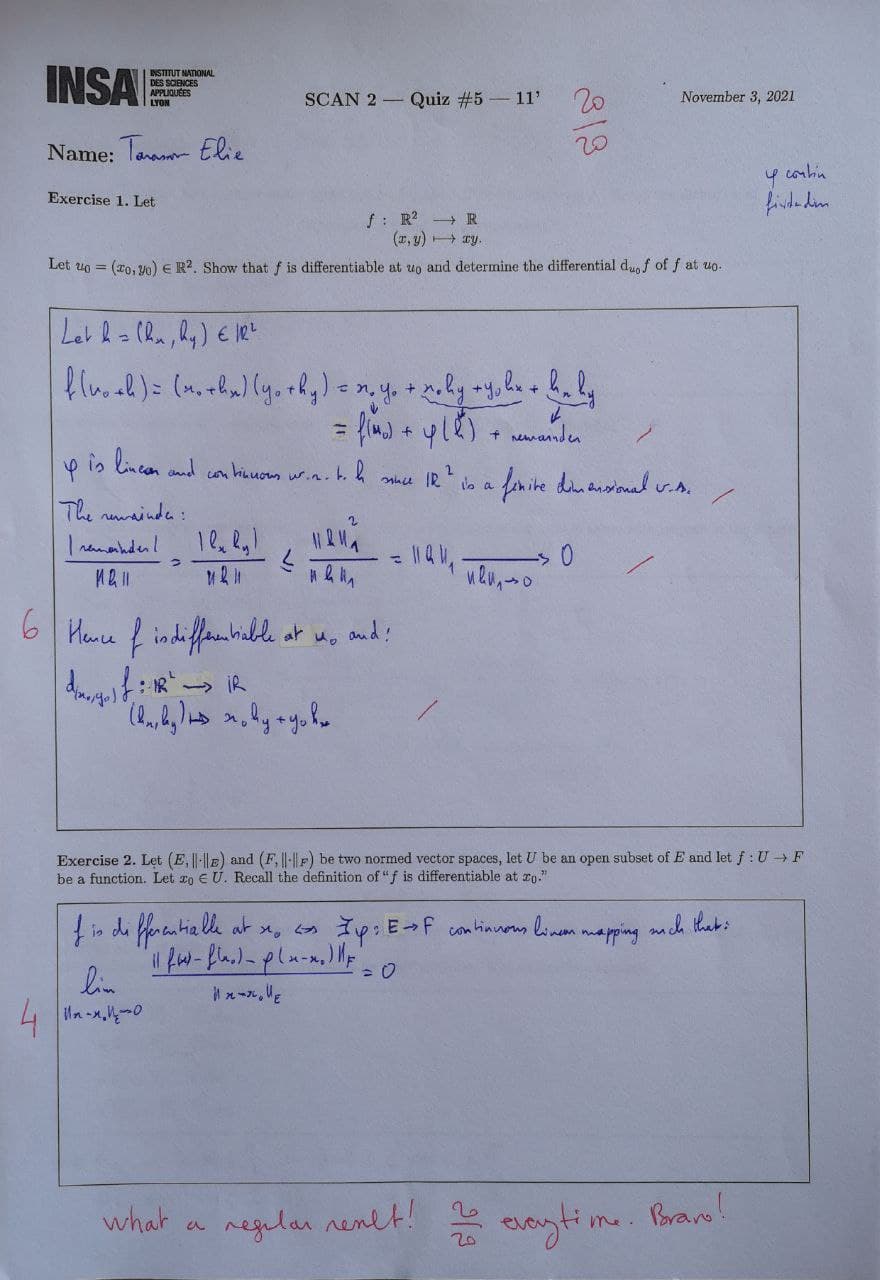 INSA INSTITUT NATIONAL
DES SCIENCES
APPLIQUÉES
LYON
SCAN 2 — Quiz #5 — 11’
20/20
November 3, 2021
Name: Elie
φ contin
finite dim
Exercise 1. Let
f : ℝ² ⟶ ℝ
(x, y) ⟼ xy.
Let u₀ = (x₀, y₀) ∈ ℝ². Show that f is differentiable at u₀ and determine the differential d_{u₀}f of f at u₀.
Let h = (hₓ, h_y) ∈ ℝ²
f(u₀+h) = (x₀+hₓ)(y₀+h_y) = x₀y₀ + x₀h_y + y₀hₓ + hₓh_y
= f(u₀) + φ(h) + remainder
φ is linear and continuous w.r.t. h since ℝ² is a finite dimensional v.s.
The remainder:
|remainder|/‖h‖ = |hₓh_y|/‖h‖ ≤ ‖h‖₁²/‖h‖₁ = ‖h‖₁ ⟶ 0
‖h‖₁→0
6
Hence f is differentiable at u₀ and:
d(x₀,y₀) f : ℝ² ⟶ ℝ
(hₓ,h_y) ↦ x₀h_y + y₀hₓ
Exercise 2. Let (E, ‖·‖_E) and (F, ‖·‖_F) be two normed vector spaces, let U be an open subset of E and let f : U → F
be a function. Let x₀ ∈ U. Recall the definition of “f is differentiable at x₀.”
f is differentiable at x₀ ⇔ ∃φ : E→F continuous linear mapping such that:
lim ‖f(x)-f(x₀)-φ(x-x₀)‖_F/‖x-x₀‖_E = 0
‖x-x₀‖_E→0
4
What a regular result! 20/20 everytime. Bravo!